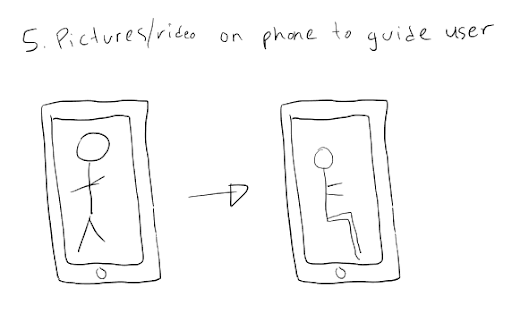 5. Pictures/video on phone to guide user